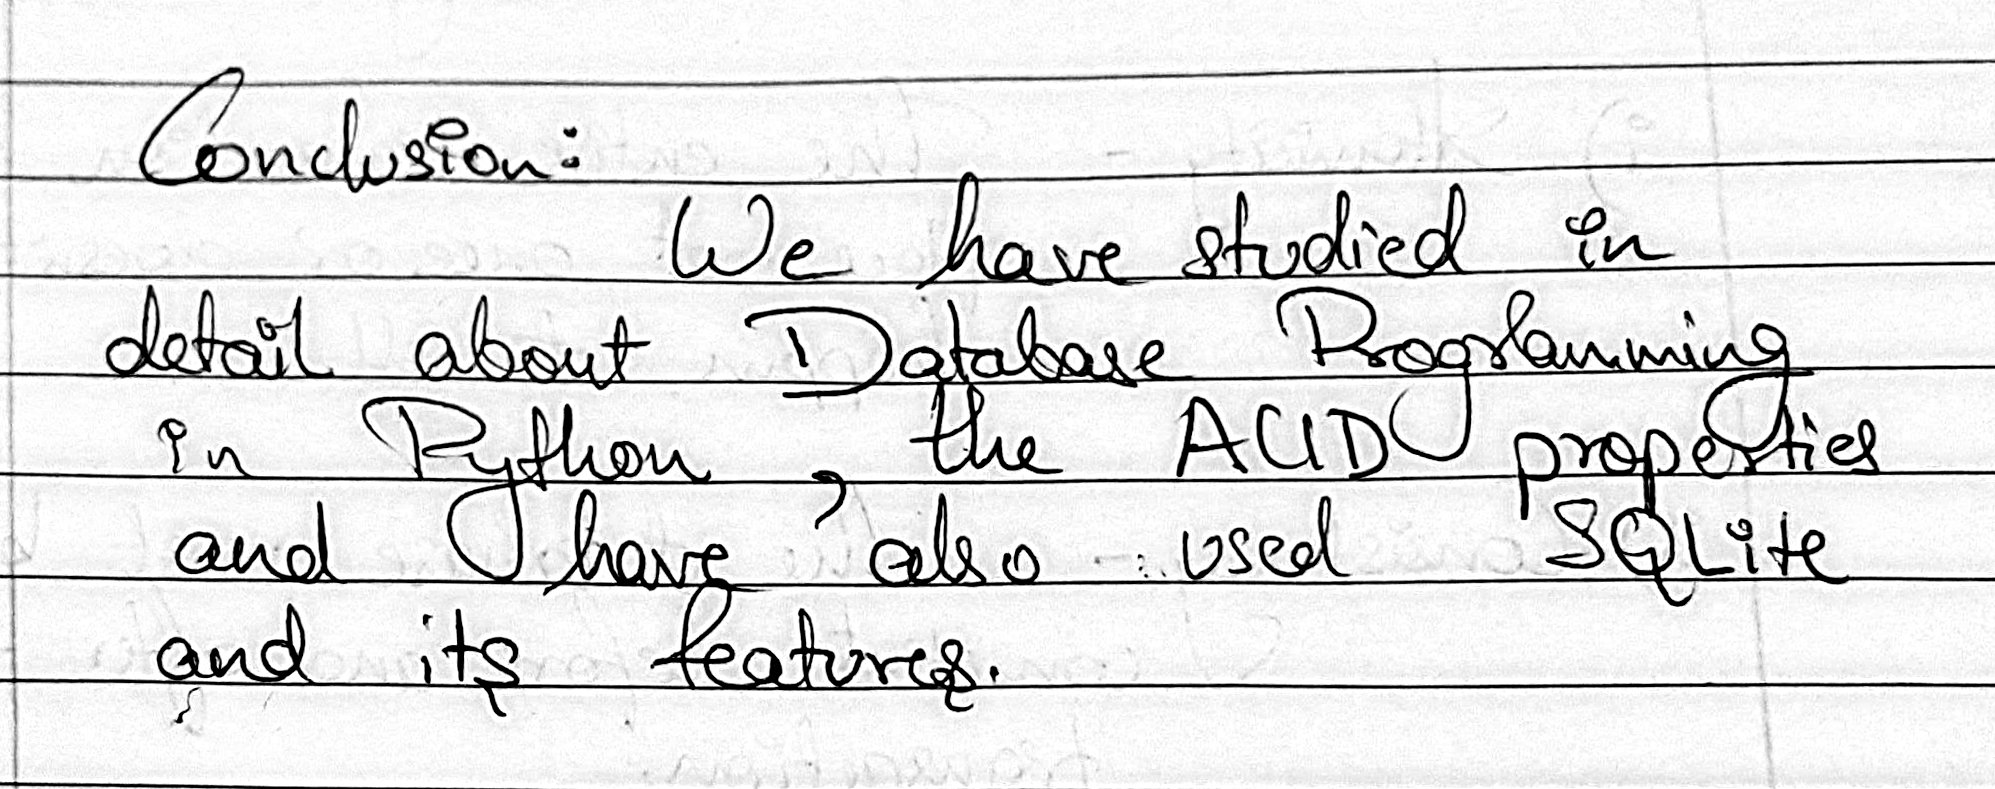 Conclusion:
We have studied in
detail about Database Programming
in Python, the ACID properties
and have also used SQLite
and its features.